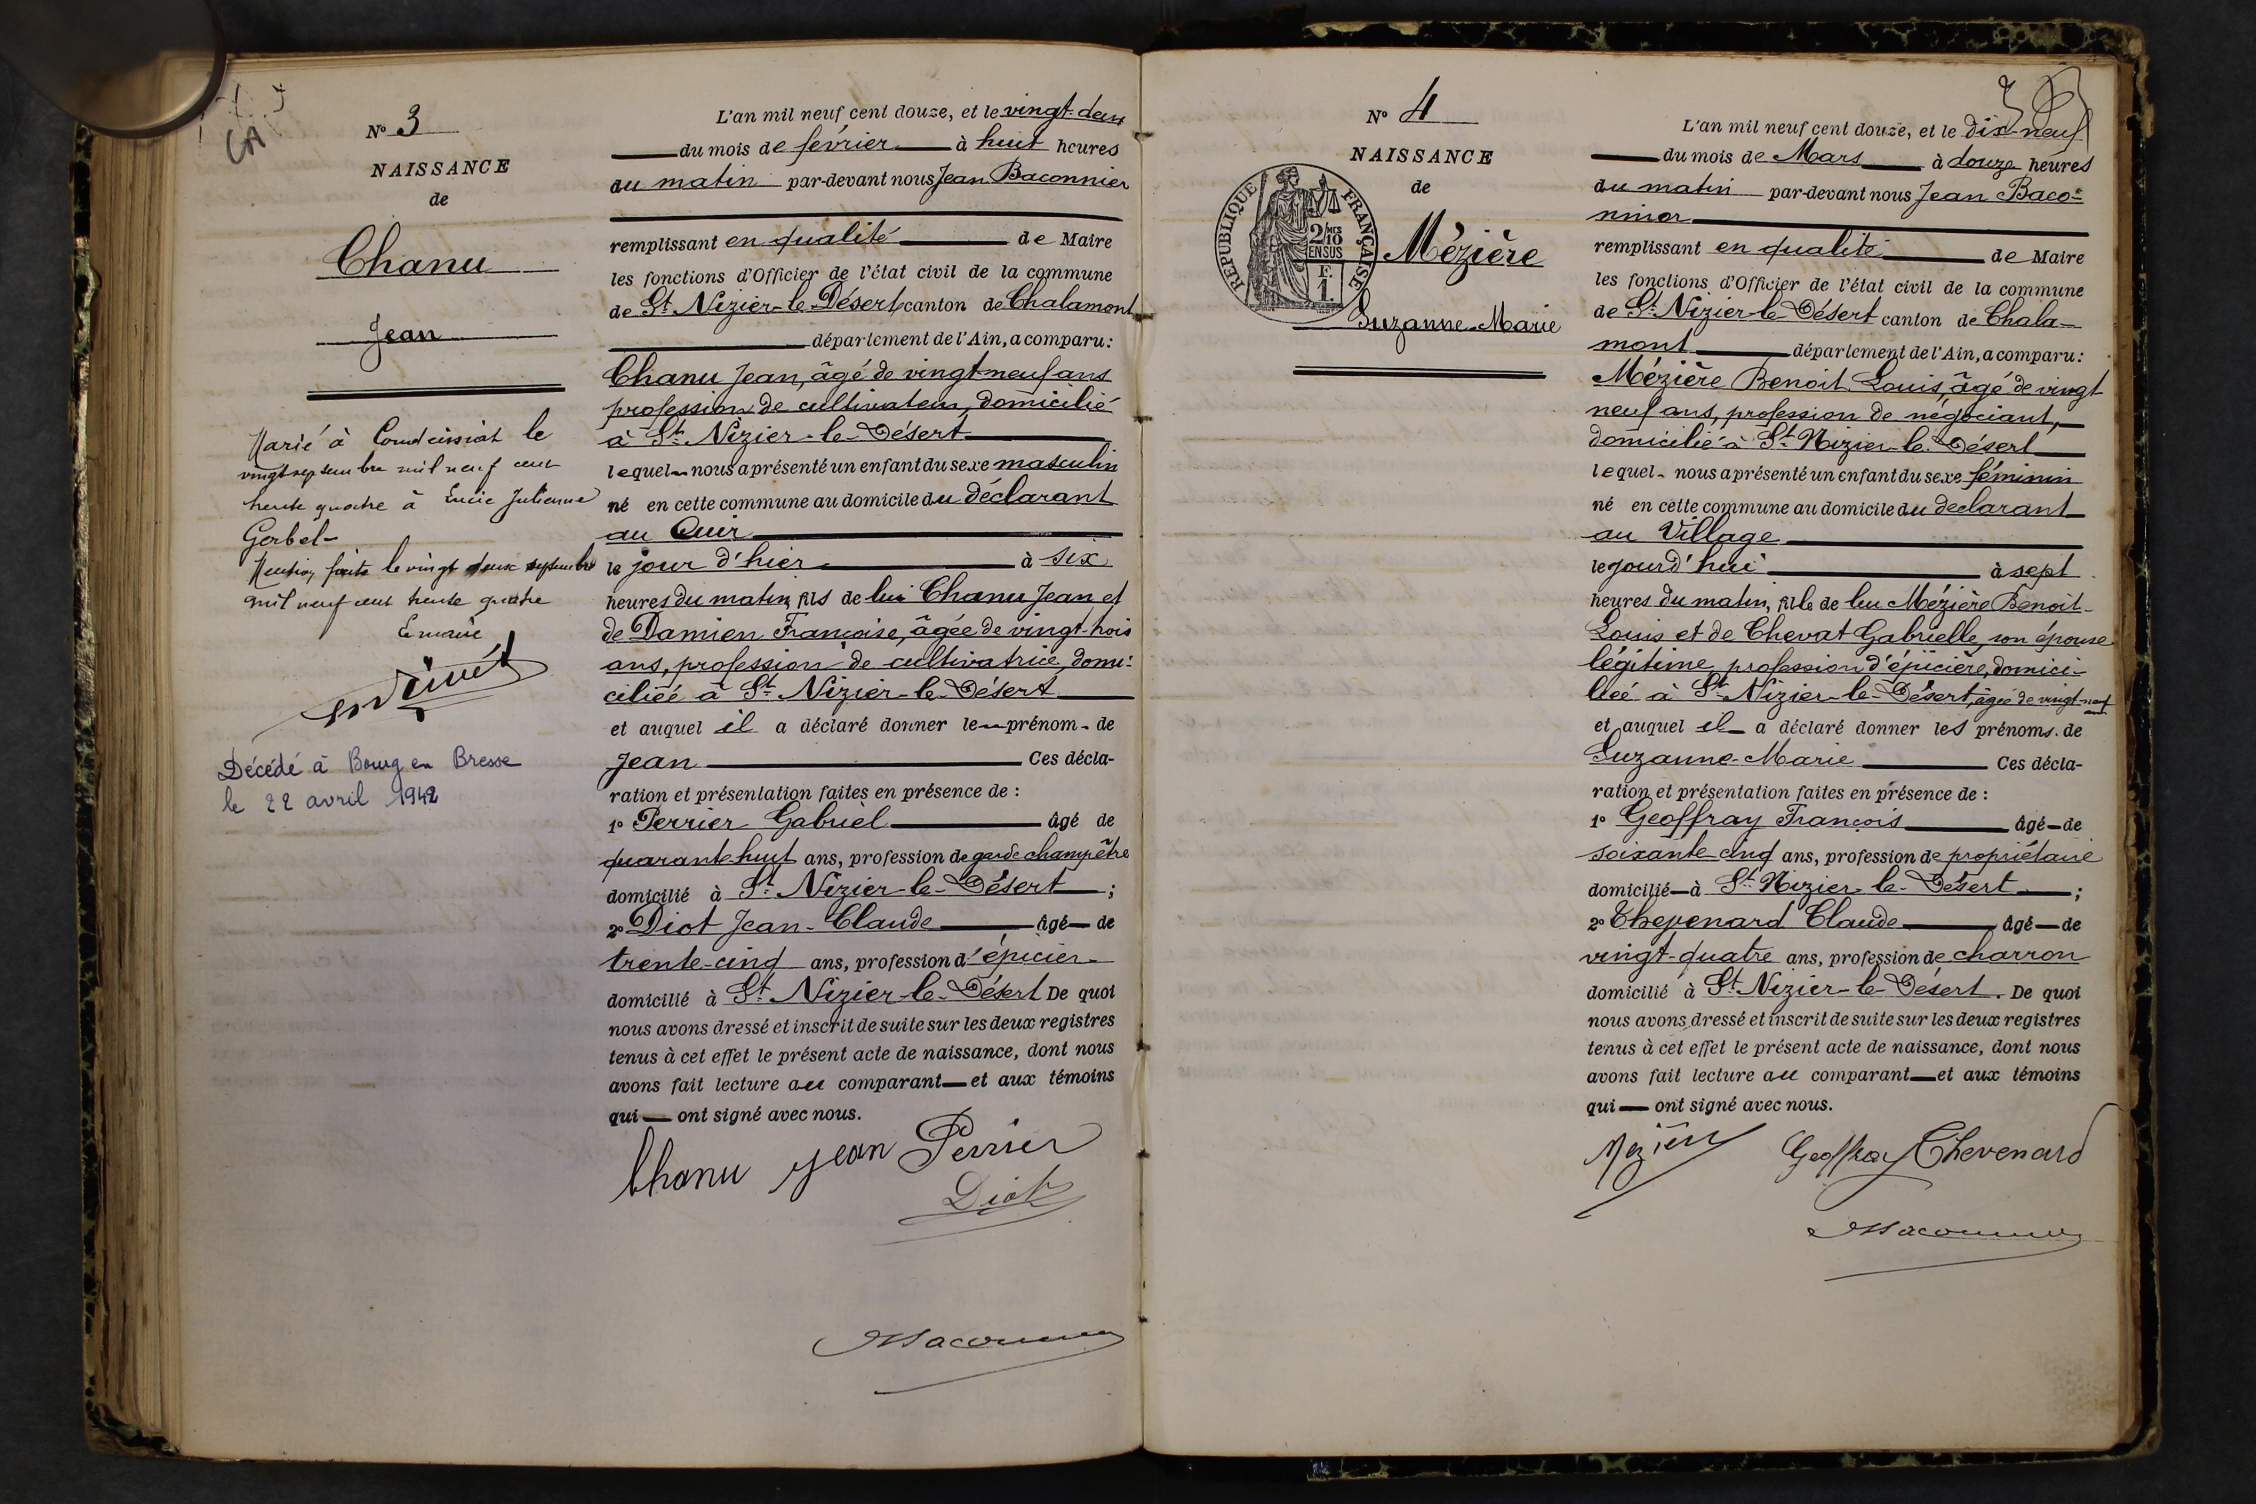 CA
N° 3
NAISSANCE
de
Chanu
Jean
Marié à Condeissiat le
vingt septembre mil neuf cent
trente quatre à Lucie Julienne
Gerbel
Mention faite le vingt deux septembre
mil neuf cent trente quatre
Le maire
Décédé à Bourg en Bresse
le 22 avril 1942
L'an mil neuf cent douze, et le vingt-deux
du mois de février à huit heures
du matin par-devant nous Jean Baconnier
remplissant en qualité de Maire
les fonctions d'Officier de l'état civil de la commune
de St Nizier-le-Désert canton de Chalamont
département de l'Ain, a comparu:
Chanu Jean, âgé de vingt-neuf ans
profession de cultivateur, domicilié
à St Nizier-le-Désert
lequel nous a présenté un enfant du sexe masculin
né en cette commune au domicile du déclarant
au Cuir
le jour d'hier à six
heures du matin, fils de lui Chanu Jean et
de Damien Françoise, âgée de vingt-trois
ans, profession de cultivatrice, domi-
ciliée à St Nizier-le-Désert
et auquel il a déclaré donner le prénom de
Jean Ces décla-
ration et présentation faites en présence de :
1° Perrier Gabriel âgé de
quarante huit ans, profession de garde champêtre
domicilié à St Nizier-le-Désert ;
2° Diot Jean-Claude âgé de
trente-cinq ans, profession d'épicier
domicilié à St Nizier-le-Désert De quoi
nous avons dressé et inscrit de suite sur les deux registres
tenus à cet effet le présent acte de naissance, dont nous
avons fait lecture au comparant et aux témoins
qui ont signé avec nous.
Chanu jean Perrier
Diot
N° 4
NAISSANCE
de
REPUBLIQUE FRANÇAISE
2/10 MES
EN SUS
F.
1.
Mézière
Suzanne-Marie
L'an mil neuf cent douze, et le dix-neuf
du mois de Mars à douze heures
du matin par-devant nous Jean Baco-
nnier
remplissant en qualité de Maire
les fonctions d'Officier de l'état civil de la commune
de St Nizier-le-Désert canton de Chala-
mont département de l'Ain, a comparu:
Mézière Benoit Louis, âgé de vingt
neuf ans, profession de négociant,
domicilié à St Nizier-le-Désert
lequel nous a présenté un enfant du sexe féminin
né en cette commune au domicile du déclarant
au Village
le jourd'hui à sept
heures du matin, fille de lui Mézière Benoit-
Louis et de Chevat Gabrielle, son épouse
légitime, profession d'épicière, domici-
liée à St Nizier-le-Désert, âgée de vingt-neuf
ans
et auquel il a déclaré donner les prénoms de
Suzanne-Marie Ces décla-
ration et présentation faites en présence de :
1° Geoffray François âgé de
soixante cinq ans, profession de propriétaire
domicilié à St Nizier-le-Désert ;
2° Thevenard Claude âgé de
vingt-quatre ans, profession de charron
domicilié à St Nizier-le-Désert. De quoi
nous avons dressé et inscrit de suite sur les deux registres
tenus à cet effet le présent acte de naissance, dont nous
avons fait lecture au comparant et aux témoins
qui ont signé avec nous.
Mézière Geoffray Thevenard